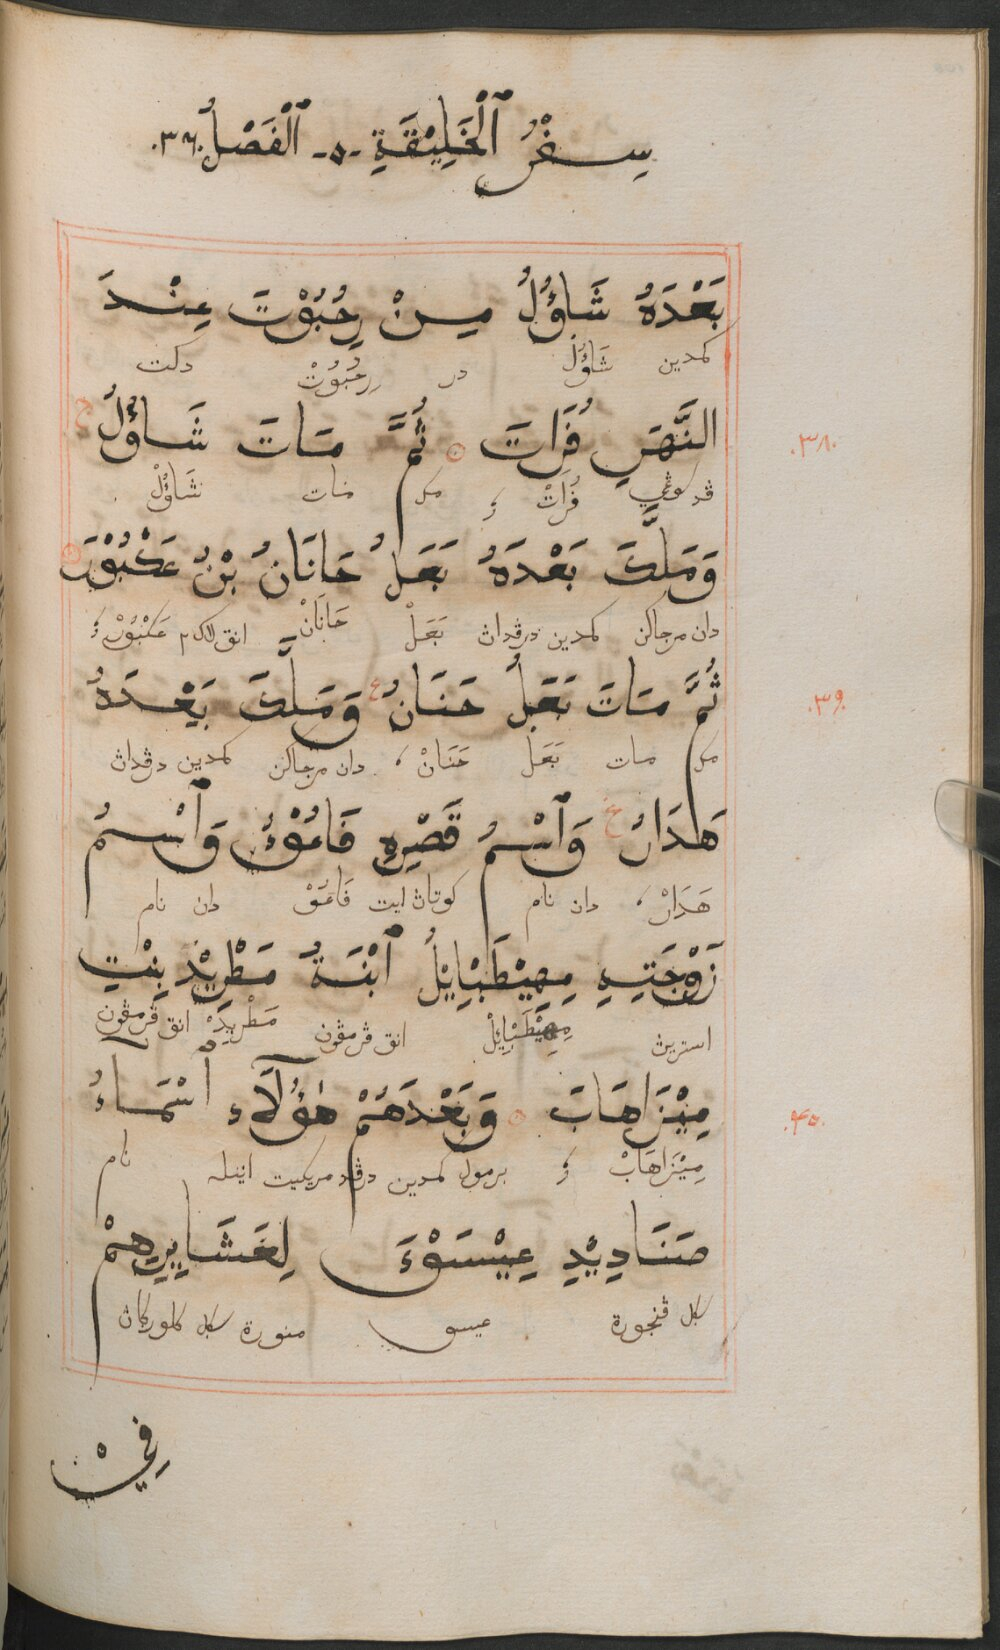 سِفْرُ ٱلْخَلِيْقَةِ -٥- ٱلْفَصْلُ .٣٦.
بَعْدَهُ شَاؤُلُ مِنْ رِحُبُوْتَ عِنْدَ
كمدين شَاؤُلْ در رحُبُوْتْ دكت
النَّهَرِ فُرَاتَ ثُمَّ مَاتَ شَاؤُلُ
.٣٨.
فُرَاتْ مك مات شَاؤُلْ
وَمَلَكَ بَعْدَهُ بَعَلُ حَانَانُ بْنُ عَكْبُوْرَ
دان مرجاكن كمدين درڤداڽ بَعَلْ حَانَانْ انق لاك٢ عَكْبُوْرْ
ثُمَّ مَاتَ بَعَلُ حَنَانُ وَمَلَكَ بَعْدَهُ
.٣٩.
مك مات بَعَلْ حَنَانْ، دان مرجاكن كمدين درڤداڽ
هَدَارُ وَٱسْمُ قَصْرِهِ فَاعُوْءُ وَٱسْمُ
هَدَارْ، دان نام كوتاڽ ايت فَاعُوْ دان نام
زَوْجَتِهِ مِهِيْطَبْإِيْلُ ٱبْنَةُ مَطْرِيْدَ بِنْتِ
استريڽ مِهِيْطَبْإِيْلْ انق ڤرمڤون مَطْرِيْدْ انق ڤرمڤون
مِيْزَاهَابَ وَبَعْدَهُمْ هٰؤُلَآءِ ٱسْمَاءُ
.٤٠.
مِيْزَاهَابْ برمول كمدين درڤد مريكيت اينله نام
صَنَادِيْدِ عِيْسَوْءَ لِعَشَايِرِهِمْ
سكل ڤنجورة عيسو منورة سكل كلوركاڽ
فِيْ